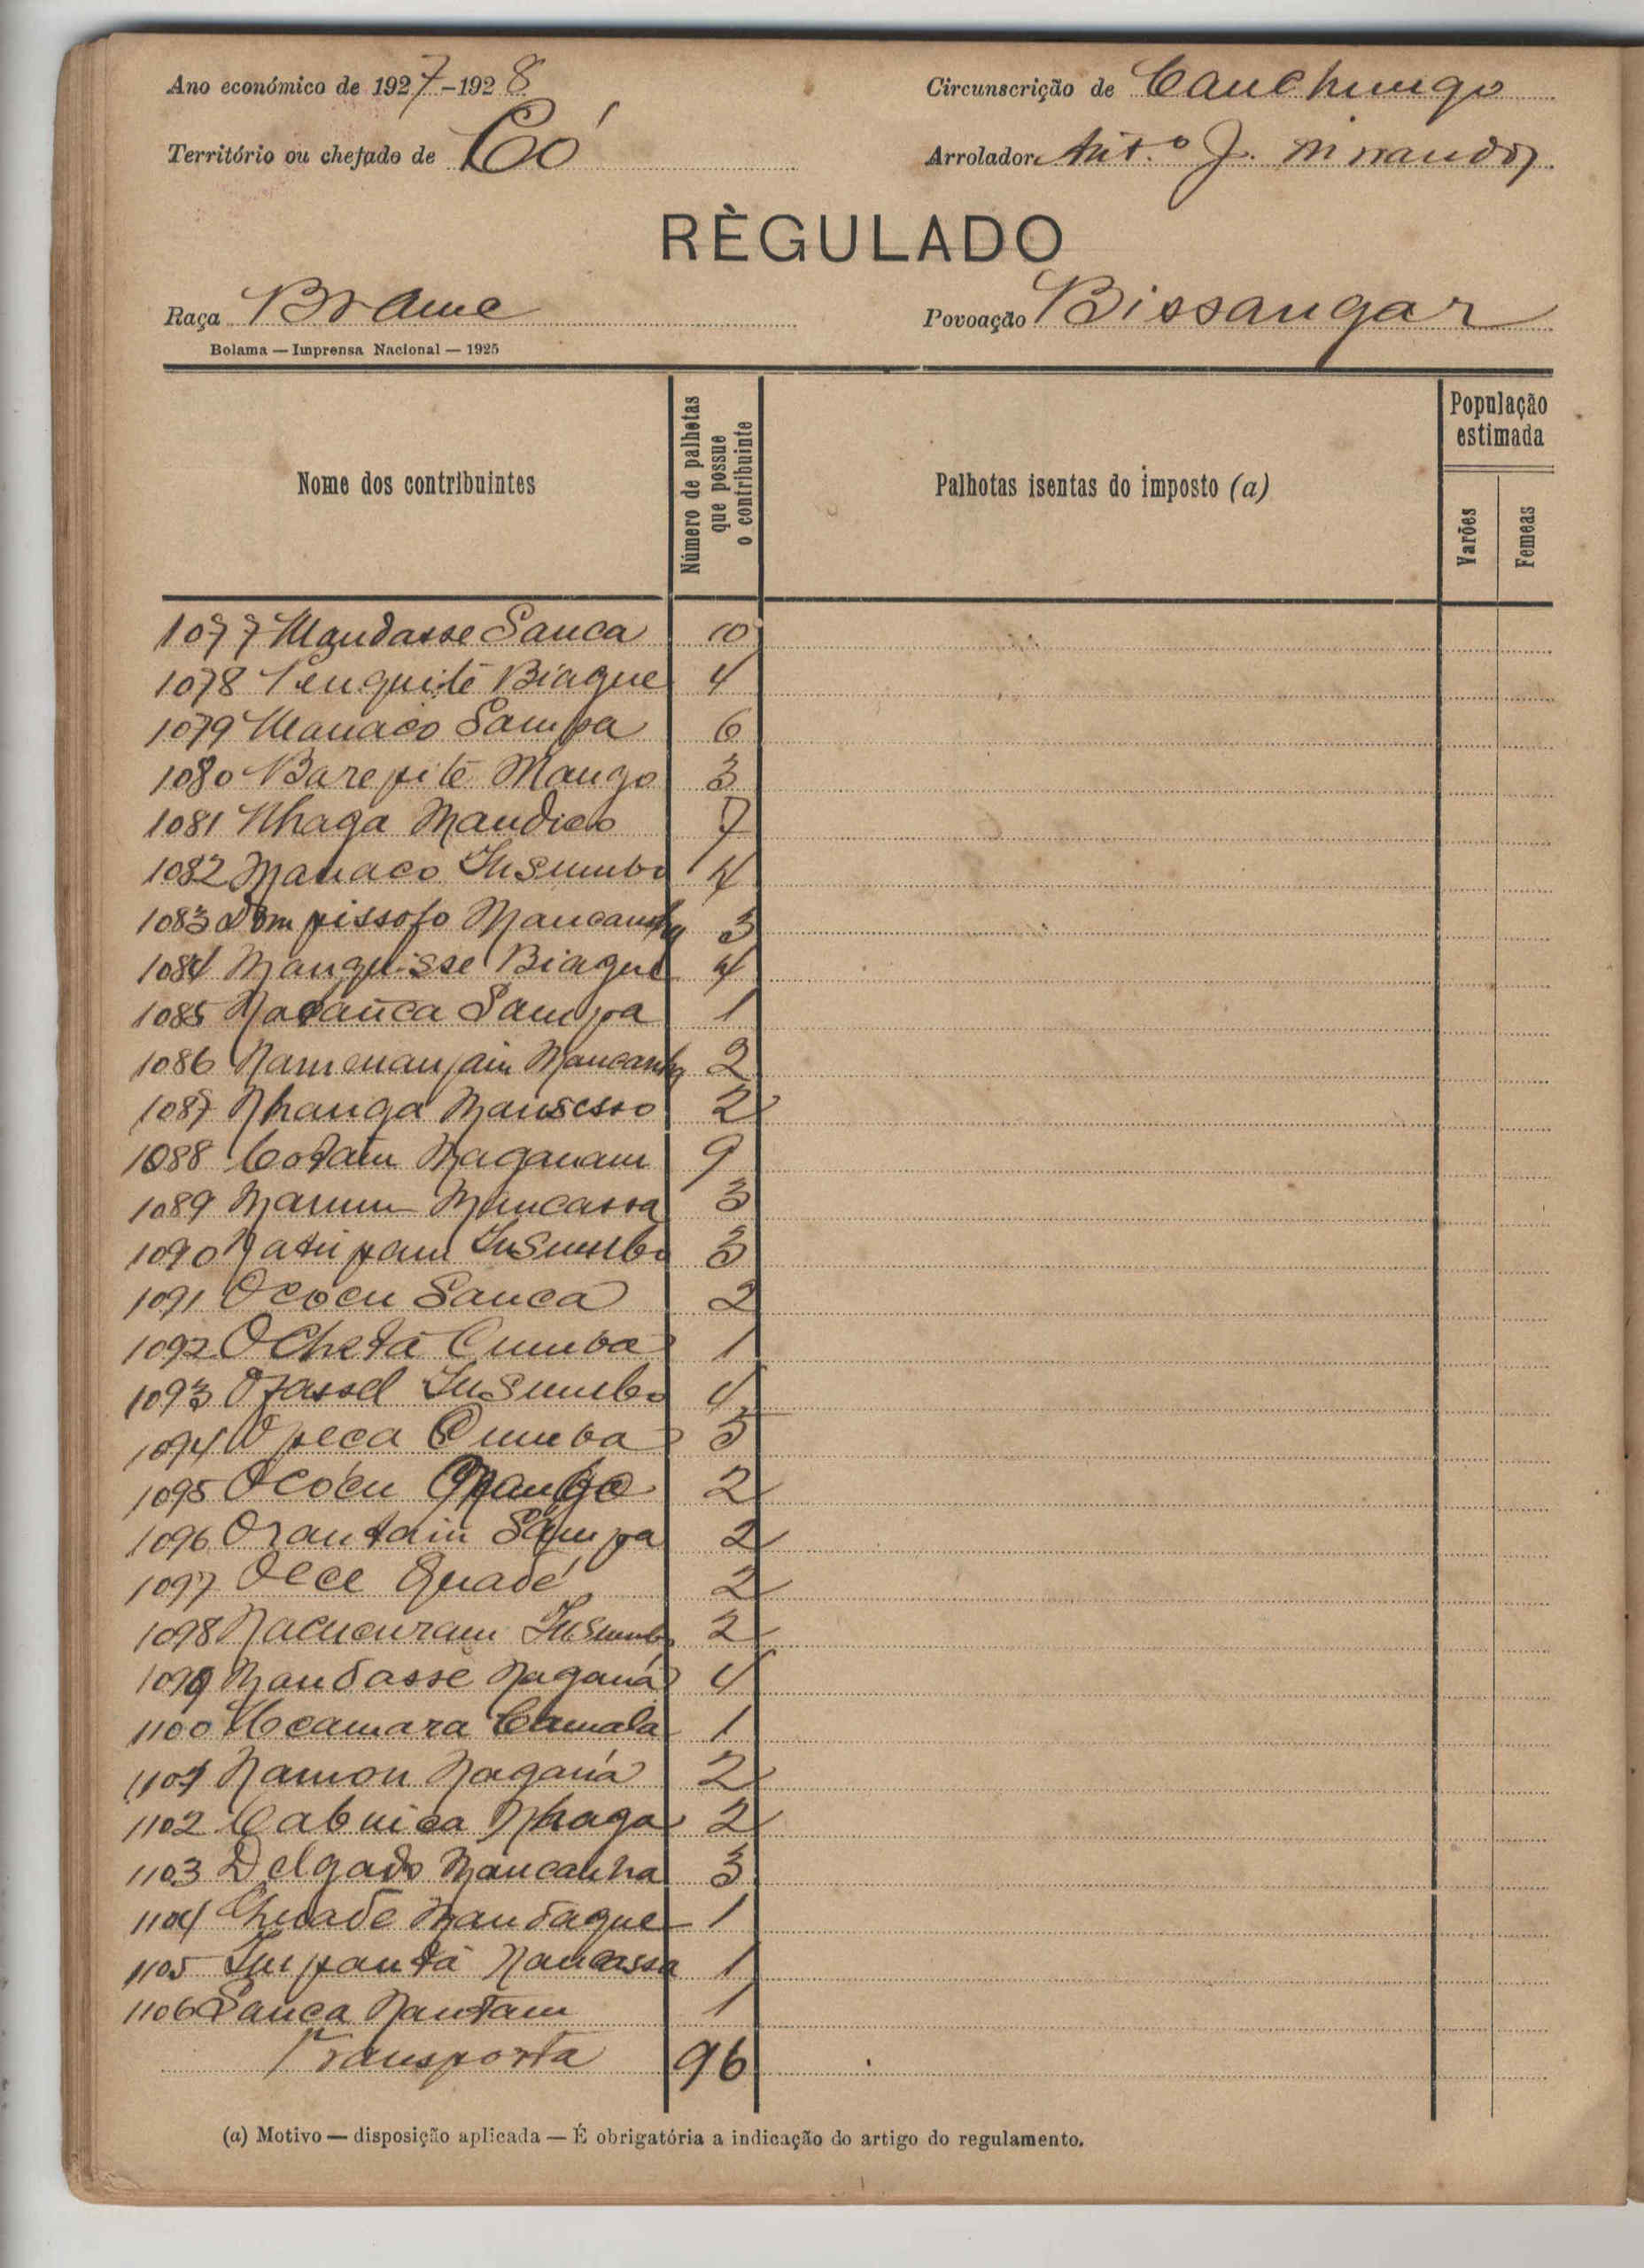 Ano económico de 1927-1928
Circunscrição de Canchungo
Território ou chefado de Có
Arrolador Antº J. Miranda
RÈGULADO
Raça Brame
Povoação Bissangar
Bolama — Imprensa Nacional — 1925
Nome dos contribuintes
Número de palhotas que possue o contribuinte
Palhotas isentas do imposto (a)
População estimada
Varões
Femeas
1077 Mandasse Sanca 10
1078 Biague 4
1079 Manaco Sampa 6
1080 Barepité Mango 3
1081 Nhaga Mandico 7
1082 Manaco Insumbo 4
1083 Dompissofo Mancanha 3
1084 Manguisse Biague 4
1085 Sampa 1
1086 Mancanha 2
1087 Nhanga Mansesso 2
1088 Cotam Naganam 9
1089 Marum Mancassa 3
1090 Natupam Insumbo 3
1091 Ococu Sanca 2
1092 Ocheta Cumba 1
1093 Ofassel Insumbo 4
1094 Opeca Cumba 5
1095 Ocócu 2
1096 Orantam Sampa 2
1097 Quadé 2
1098 Insumbo 2
1099 Mandasse Naganá 4
1100 Ucamara Camala 1
1101 Namon Naganá 2
1102 Cabnica Nhaga 2
1103 Delgado Mancanha 3
1104 Mandague 1
1105 Impantá Nancassa 1
1106 Sanca Nantam 1
Transporta 96
(a) Motivo — disposição aplicada — É obrigatória a indicação do artigo do regulamento.